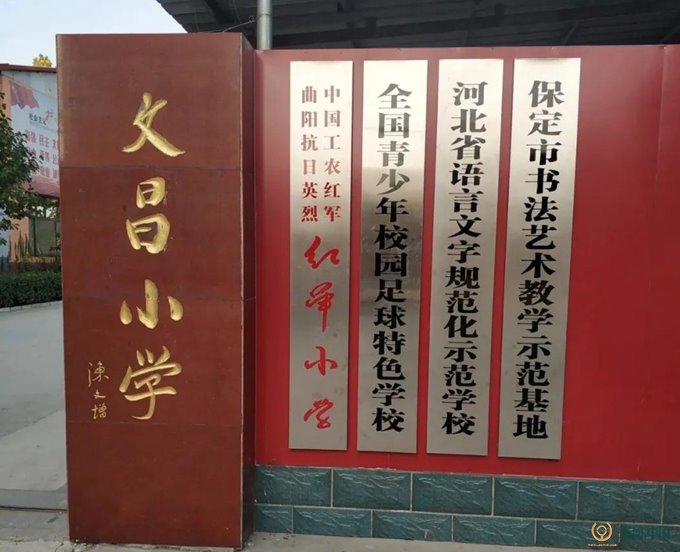 文昌小学
陳文增
中国工农红军
曲阳抗日英烈
红军小学
全国青少年校园足球特色学校
河北省语言文字规范化示范学校
保定市书法艺术教学示范基地